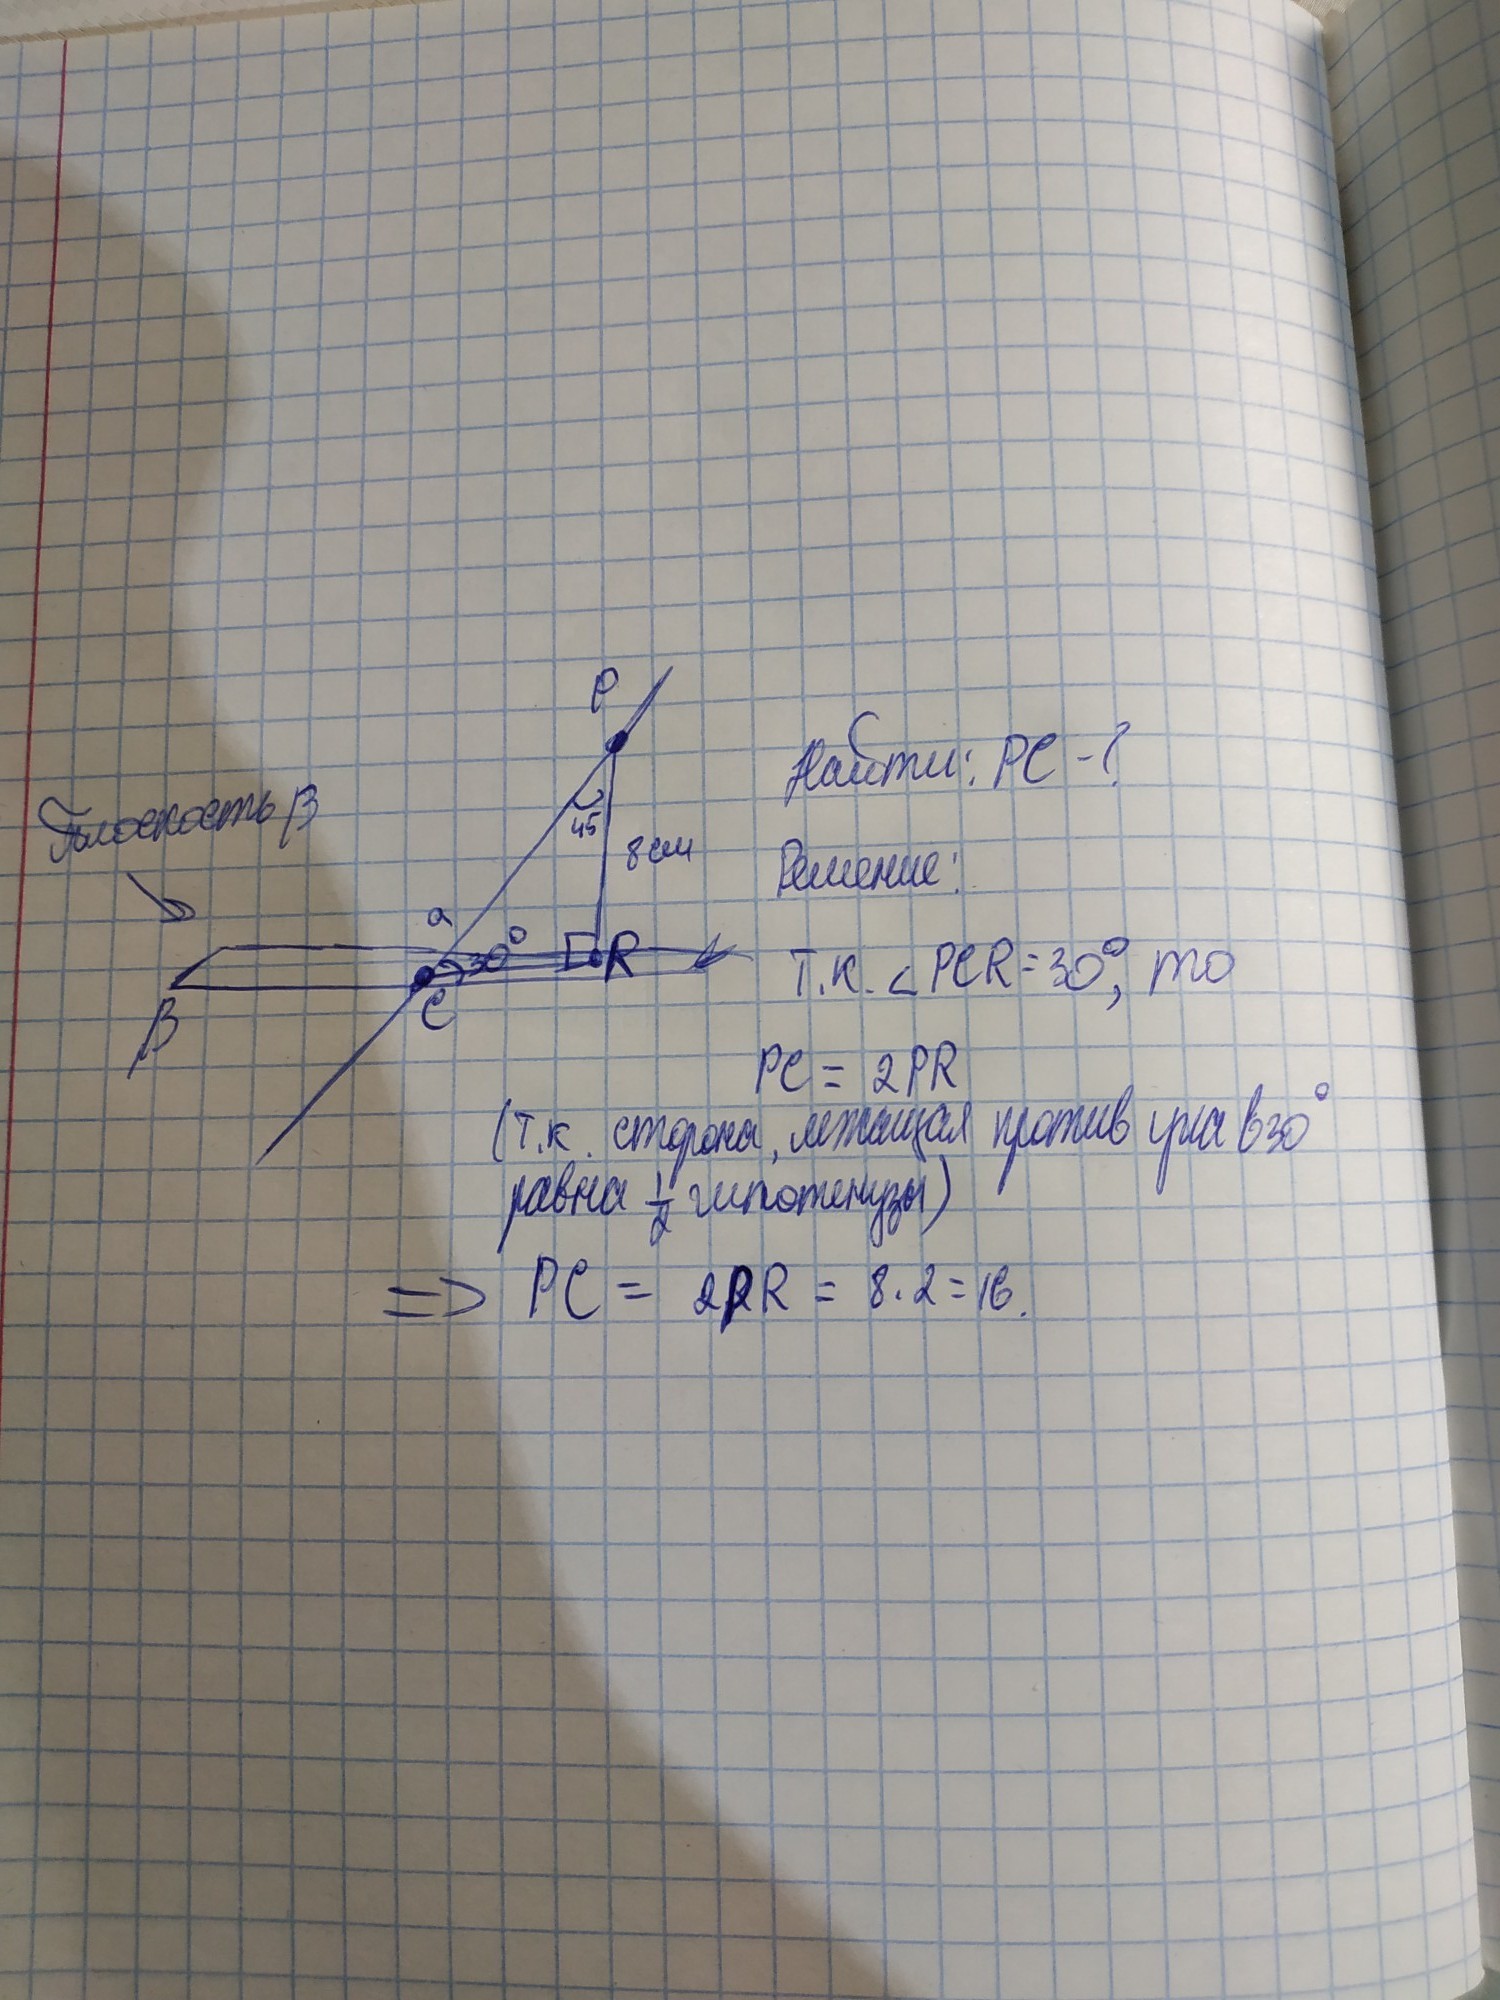 P
Найти: PC - ?
Плоскость β
45
8 см
Решение:
a
30°
R
C
β
Т.к. ∠PCR = 30°, то
PC = 2PR
(т.к. сторона, лежащая против угла в 30°
равна 1/2 гипотенузы)
=> PC = 2PR = 8 · 2 = 16.